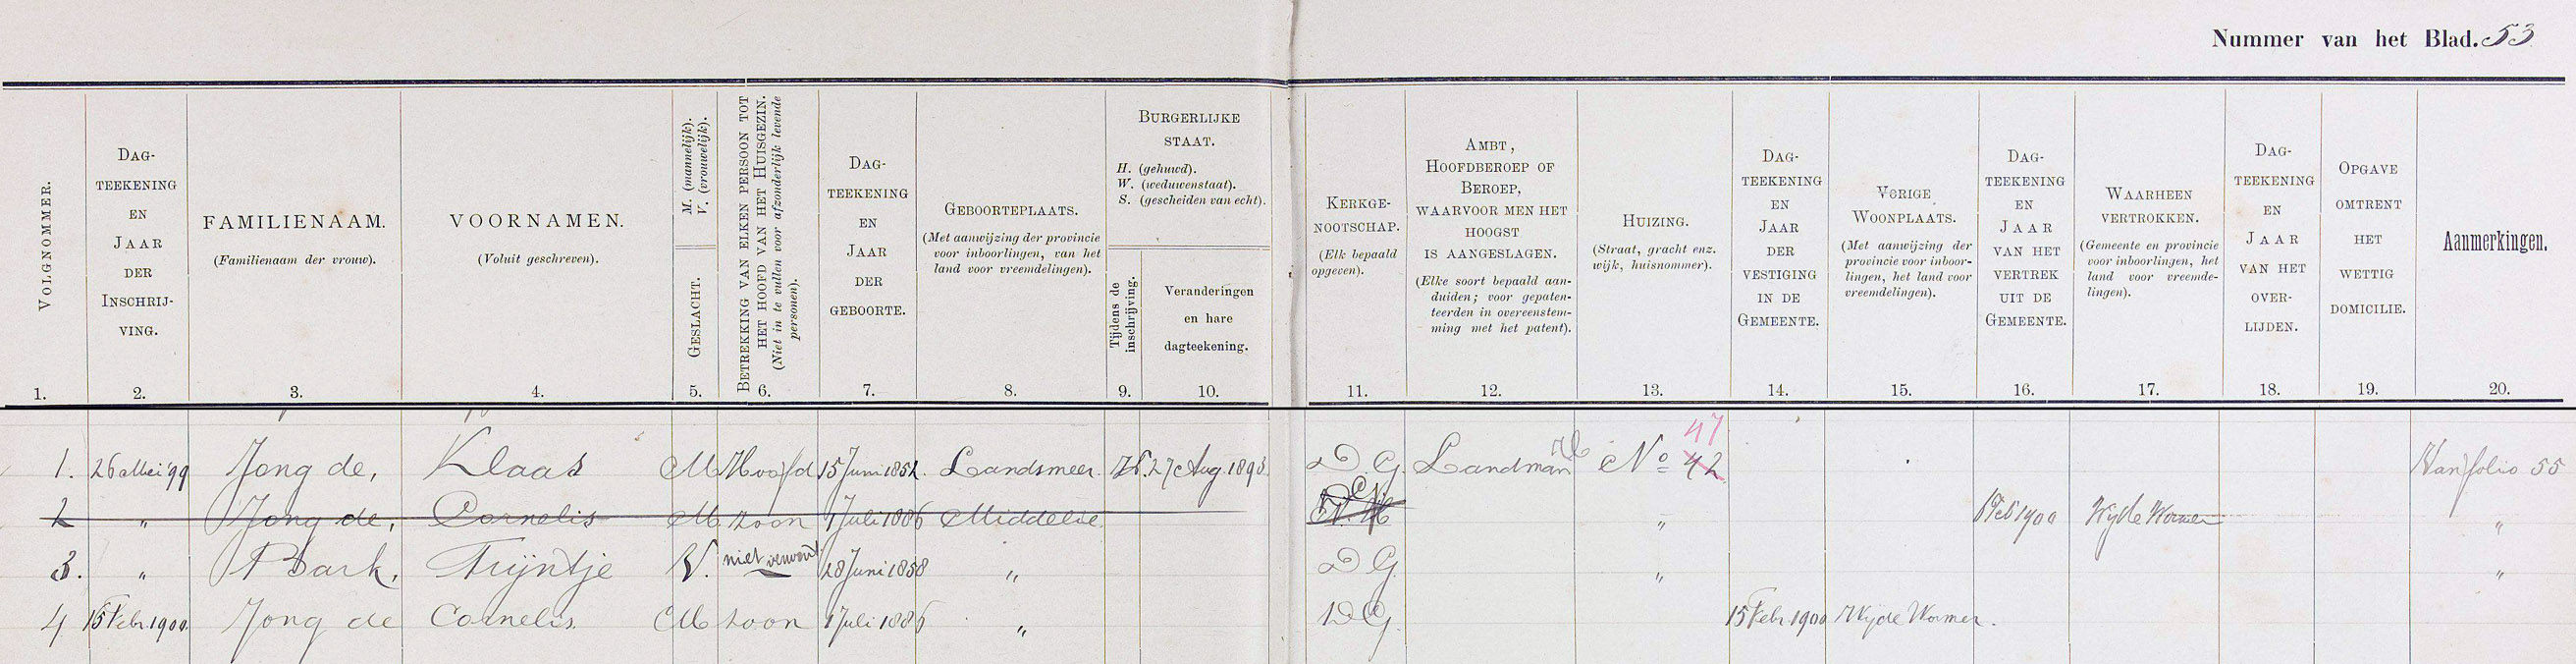 Nummer van het Blad. 53
VOLGNOMMER.
1.
DAG-
TEEKENING
EN
JAAR
DER
INSCHRIJ-
VING.
2.
FAMILIENAAM.
(Familienaam der vrouw).
3.
VOORNAMEN.
(Voluit geschreven).
4.
M. (mannelijk).
V. (vrouwelijk).
GESLACHT.
5.
BETREKKING VAN ELKEN PERSOON TOT
HET HOOFD VAN HET HUISGEZIN.
(Niet in te vullen voor afzonderlijk levende
personen).
6.
DAG-
TEEKENING
EN
JAAR
DER
GEBOORTE.
7.
GEBOORTEPLAATS.
(Met aanwijzing der provincie
voor inboorlingen, van het
land voor vreemdelingen).
8.
BURGERLIJKE
STAAT.
H. (gehuwd).
W. (weduwenstaat).
S. (gescheiden van echt).
Tijdens de
inschrijving.
9.
Veranderingen
en hare
dagteekening.
10.
KERKGE-
NOOTSCHAP.
(Elk bepaald
opgeven).
11.
AMBT,
HOOFDBEROEP OF
BEROEP,
WAARVOOR MEN HET
HOOGST
IS AANGESLAGEN.
(Elke soort bepaald aan-
duiden; voor gepaten-
teerden in overeenstem-
ming met het patent).
12.
HUIZING.
(Straat, gracht enz.
wijk, huisnommer).
13.
DAG-
TEEKENING
EN
JAAR
DER
VESTIGING
IN DE
GEMEENTE.
14.
VORIGE
WOONPLAATS.
(Met aanwijzing der
provincie voor inboor-
lingen, het land voor
vreemdelingen).
15.
DAG-
TEEKENING
EN
JAAR
VAN HET
VERTREK
UIT DE
GEMEENTE.
16.
WAARHEEN
VERTROKKEN.
(Gemeente en provincie
voor inboorlingen, het
land voor vreemde-
lingen).
17.
DAG-
TEEKENING
EN
JAAR
VAN HET
OVER-
LIJDEN.
18.
OPGAVE
OMTRENT
HET
WETTIG
DOMICILIE.
19.
Aanmerkingen.
20.
47
1. 26 Mei '99 Jong de, Klaas M Hoofd 15 Juni 1852. Landsmeer. 27 Aug. 1893. D. G. Landman No 42 Van folio 55
2 " Jong de, Cornelis M zoon 1 Juli 1886 Middelie " Feb 1900 Wijde Wormer "
3. " Bark, Trijntje V. niet verwant 28 Juni 1858 " D G. " "
4 15 Febr. 1900. Jong de Cornelis. M zoon 1 Juli 1886 " D G. 15 Febr. 1900 Wijde Wormer.